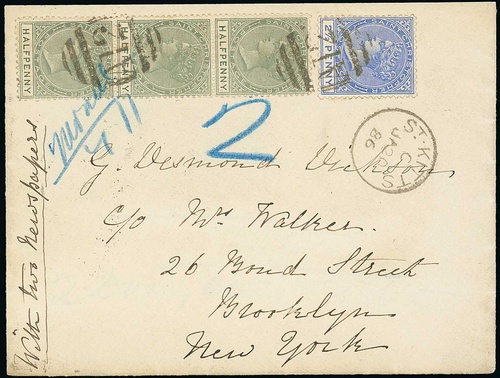 HALFPENNY
HALFPENNY
HALFPENNY
SAINT CHRISTOPHER
2
ST. KITTS
C
JA
86
G. Desmond Dickson
c/o Mrs Walker.
26 Bond Street
Brooklyn
New York
With two newspapers